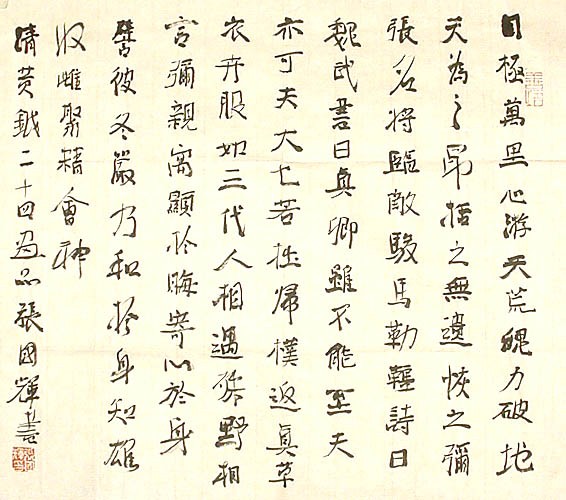 目極萬里心游天荒魄力破地
天為之昂括之無遺恢之彌
張名將臨敵駿馬勒韁詩曰
魏武書曰真卿雖不能至夫
亦可夫大若拙歸樸返真草
衣卉服如三代人相遇殊野相
言彌親寓顯於晦寄心於身
譬彼冬嚴乃和於身知雄
收雌聚精會神
清黄鉞二十四画品張國輝書